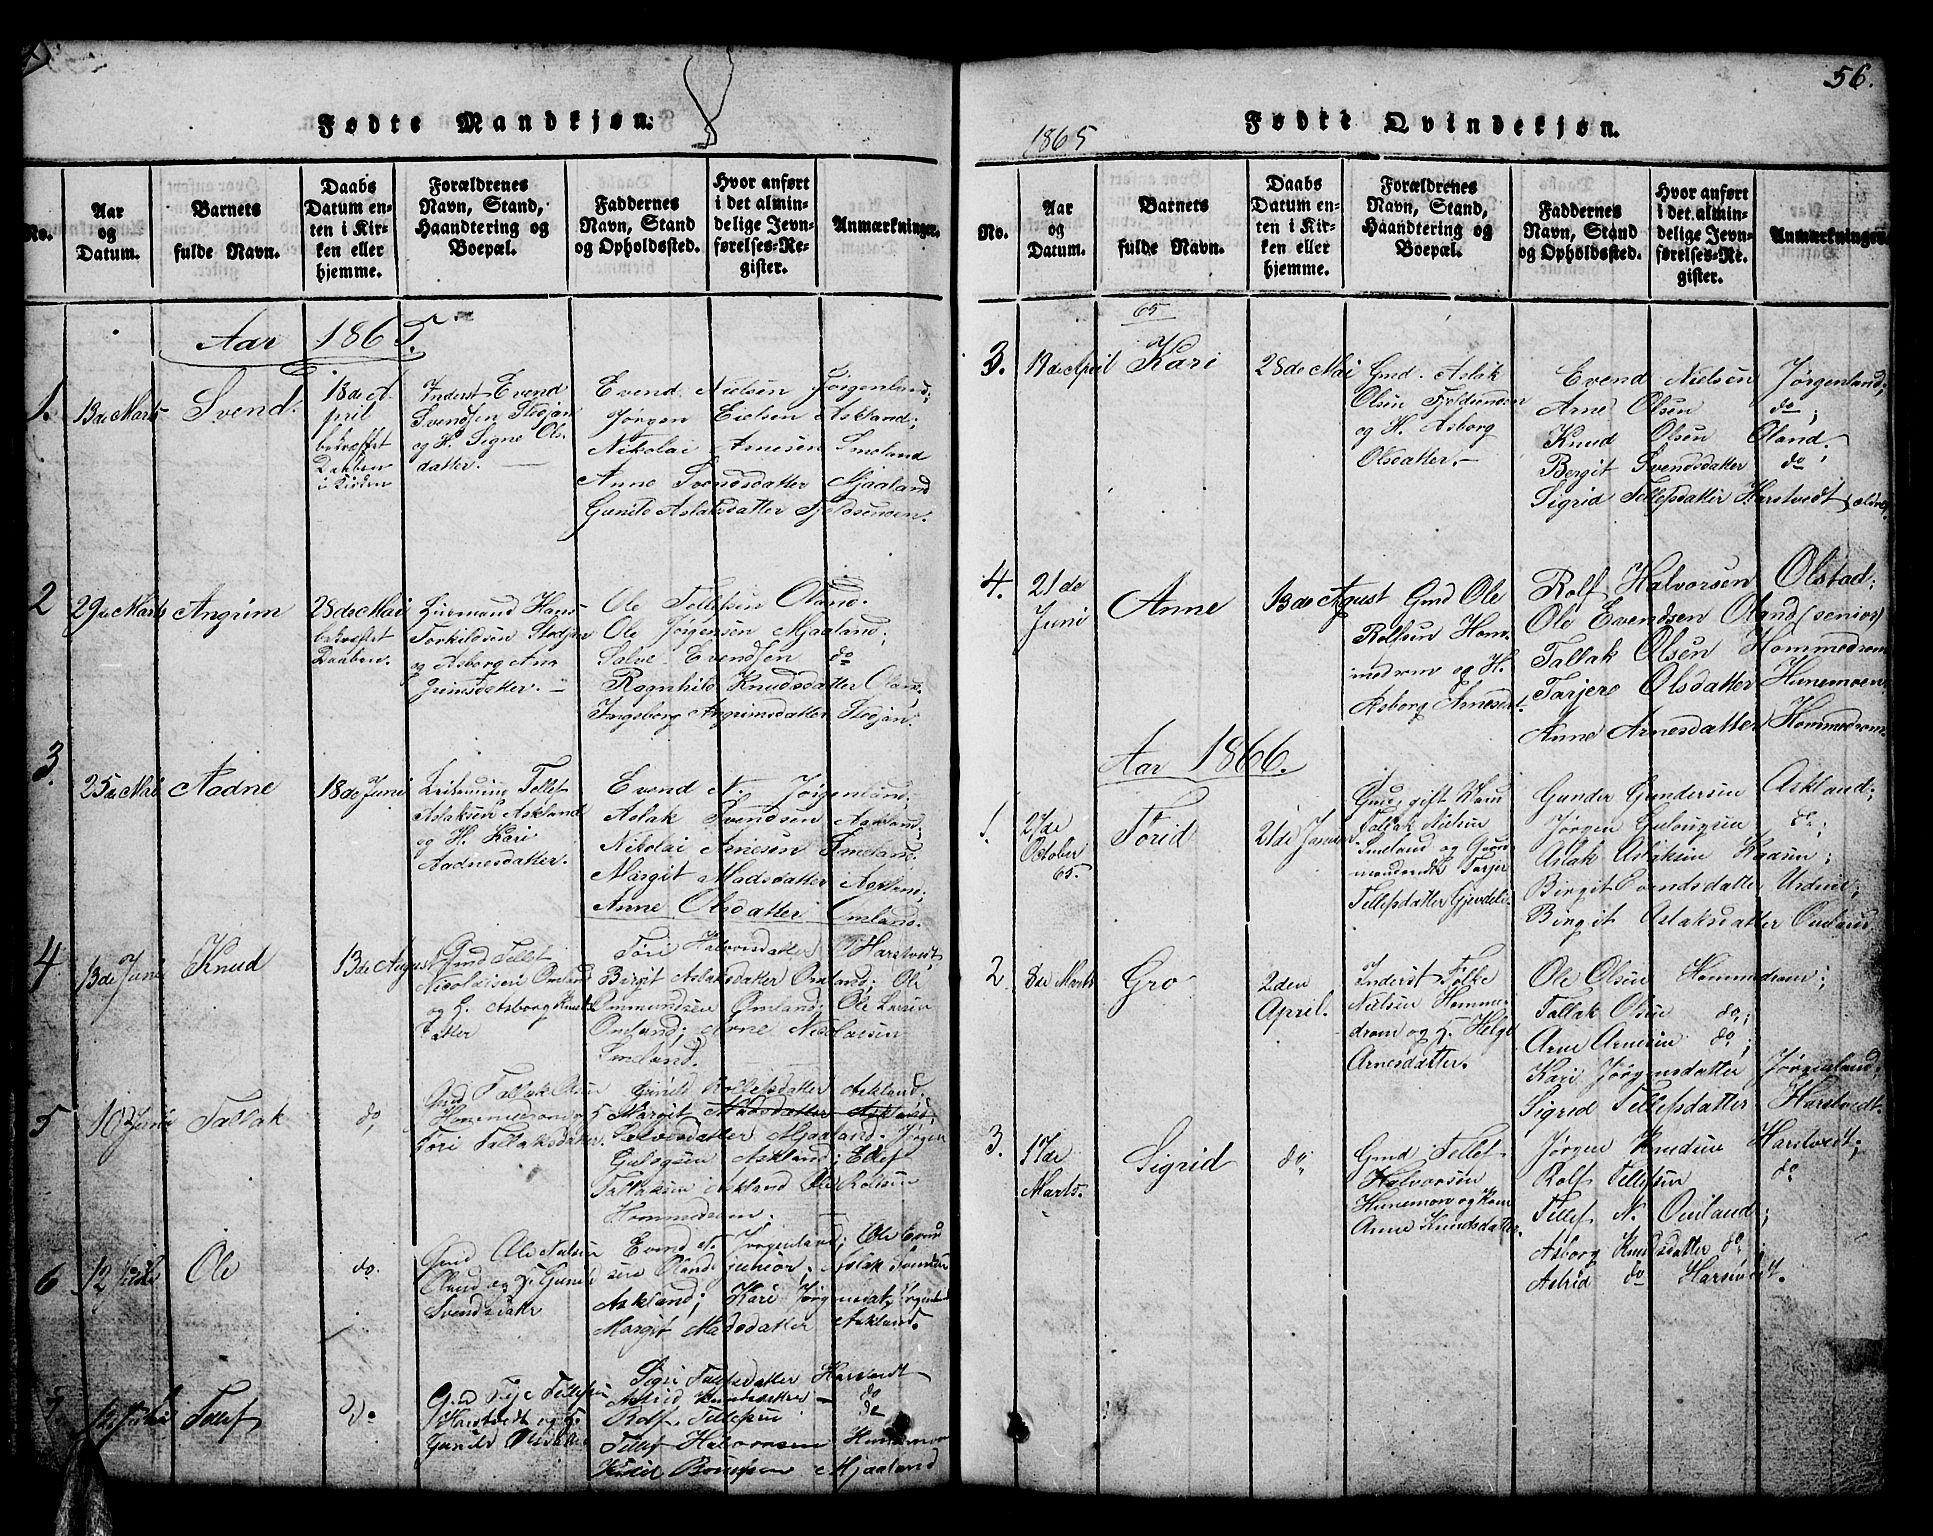 Fødte Mandkjøn.
No.
Aar
og
Datum.
Barnets
fulde Navn.
Daabs
Datum en-
ten i Kir-
ken eller
hjemme.
Forældrenes
Navn, Stand,
Haandtering og
Boepæl.
Faddernes
Navn, Stand
og Opholdssted.
Hvor anført
i det almin-
delige Jevn-
førelses-Re-
gister.
Anmærkninger.
Aar 1865.
1.
13de Marts
Svend
13de A-
pril
bekræftet
Daaben
i Kirken
Inderst Evend
Svendsen Stedjan
og H. Signe Ols-
datter.
Evend Nielsen Jørgenland;
Jørgen Eielsen Askland;
Nikolai Arnesen Smeland
Anne Svendsdatter Mjaaland
Gunild Aslaksdatter Fjeldsmoen.
2
29de Marts
Angrim
28de Mai
bekræftet
Daaben.
Hans
Torkildsen Stedjan
og Asborg Ann
grimsdatter.
Ole Tellefsen Oland.
Ole Jørgensen Mjaaland;
Salve Evendsen do
Ragnhild Knudsdatter Oland,
Ingeborg Angrimsdatter Stedjan.
3.
25de Mai
Aadne
18de Juni
Tellef
Aslaksen Askland
og H. Kari
Aadnesdatter.
Evend N. Jørgenland,
Aslak Svendsen Askland;
Nikolai Arnesen Smeland.
Margit Madsdatter Askland;
Anne Olsdatter Omland.
4
13de Juni
Knud
13de August
Gmd Tellef
Nicolaisen Omland
og H. Asborg Knuds
datter
Tori Halvorsdatter Harstvedt,
Birgit Aslaksdatter Omland; Ole
Ommundsen Omland; Ole Larsen
Omland; Arne Nicolaisen
Smeland.
5
10de Juni
Tallak
do,
Gmd Tallak Olsen
Hommedrom og
Tori Tallaksdatter.
Gunild Rolfsdatter Askland.
Margit Madsdatter Askland;
Salvesdatter Mjaaland. Jørgen
Gulogsen Askland; Ellef
Tallaksen Askland Ole Rolfsen
Hommedrom.
6
12
Ole
do.
Gmd Ole Nielsen
Oland og H. Gunild
Svendsdatter
Evend N. Jørgenland; Ole Evend
sen Oland junior. Aslak Svendsen
Askland; Kari Jørgensdat,
Margit Madsdatter Askland.
7.
Tellef
Do
Gmd Tellefsen
Harstvedt og H.
Gunild
Sigri Tallefsdatter Harstvedt
Astrid Knudsdatter do
Rolf Tellefsen do
Tellef Halvorsen Hunemoe
Mjaaland
56.
1865
Fødte Qvindekjøn.
No.
Aar
og
Datum.
Barnets
fulde Navn.
Daabs
Datum en-
ten i Kir-
ken eller
hjemme.
Forældrenes
Navn, Stand,
Haandtering og
Boepæl.
Faddernes
Navn, Stand
og Opholdssted.
Hvor anført
i det almin-
delige Jevn-
førelses-Re-
gister.
Anmærkninger.
65
3.
19de April
Kari
28de Mai
Gmd. Aslak
Olsen Fjeldsmoen
og H. Asborg
Olsdatter.
Evend Nielsen Jørgenland;
Arne Olsen do;
Knud Olsen Oland.
Bergit Svendsdatter do
Sigrid Tellefsdatter Harstvedt, ældre.
4.
21de
Juni
Anne
13de August
Gmd Ole
Rolfsen Hom-
medrom og H.
Asborg Arnesdt.
Rolf Halvorsen Olstad;
Ole Evendsen Oland (senior)
Tallak Olsen Hommedrom
Tarjere Olsdatter Hunemoen
Anne Arnesdatter Hommedrom.
Aar 1866.
1.
27de
October
65.
Torid
21de Januar
gift Mand
Tallak Nielsen
Smeland og
Tarjer
Tellefsdatter Gjevdeli
Gunder Gundersen Askland;
Jørgen Gulougsen do;
Aslak Aslaksen
Birgit Evendsdatter
Birgit Aslaksdatter Omland
2
8de Marts
Gro
2den
April.
Inderst Folke
Nielsen Homme-
drom og H. Helge
Arnesdatter.
Ole Olsen Hommedrom;
Tallak Olsen do;
Arne Arnesen do;
Kari Jørgensdatter Jørgenland;
Sigrid Tellefsdatter Harstvedt
3.
17de
Marts.
Sigrid
do,
Gmd Tellef
Halvorsen
Hunemoen og Kone
Anne Knudsdatter.
Jørgen Knudsen Harstvedt;
Rolf Tellefsen do
Tellef N. Omland;
Asborg Knudsdatter do;
Astrid do Harstvedt.